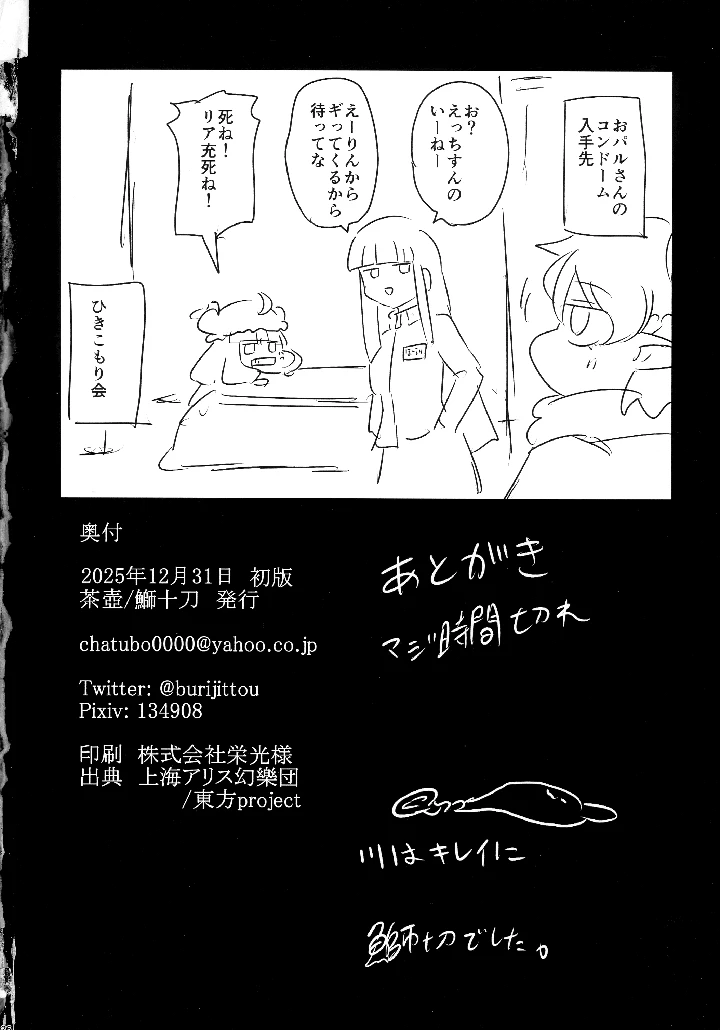 おパルさんの
コンドーム
入手先
お?
えっちすんの
いーねー
えーりんから
ギってくるから
待ってな
死ね!
リア充死ね!
ひきこもり会
奥付
2025年12月31日 初版
茶壺/鰤十刀 発行
chatubo0000@yahoo.co.jp
Twitter: @burijittou
Pixiv: 134908
印刷 株式会社栄光様
出典 上海アリス幻樂団
/東方project
あとがき
マジ時間切れ
川はキレイに
鰤十刀でした。